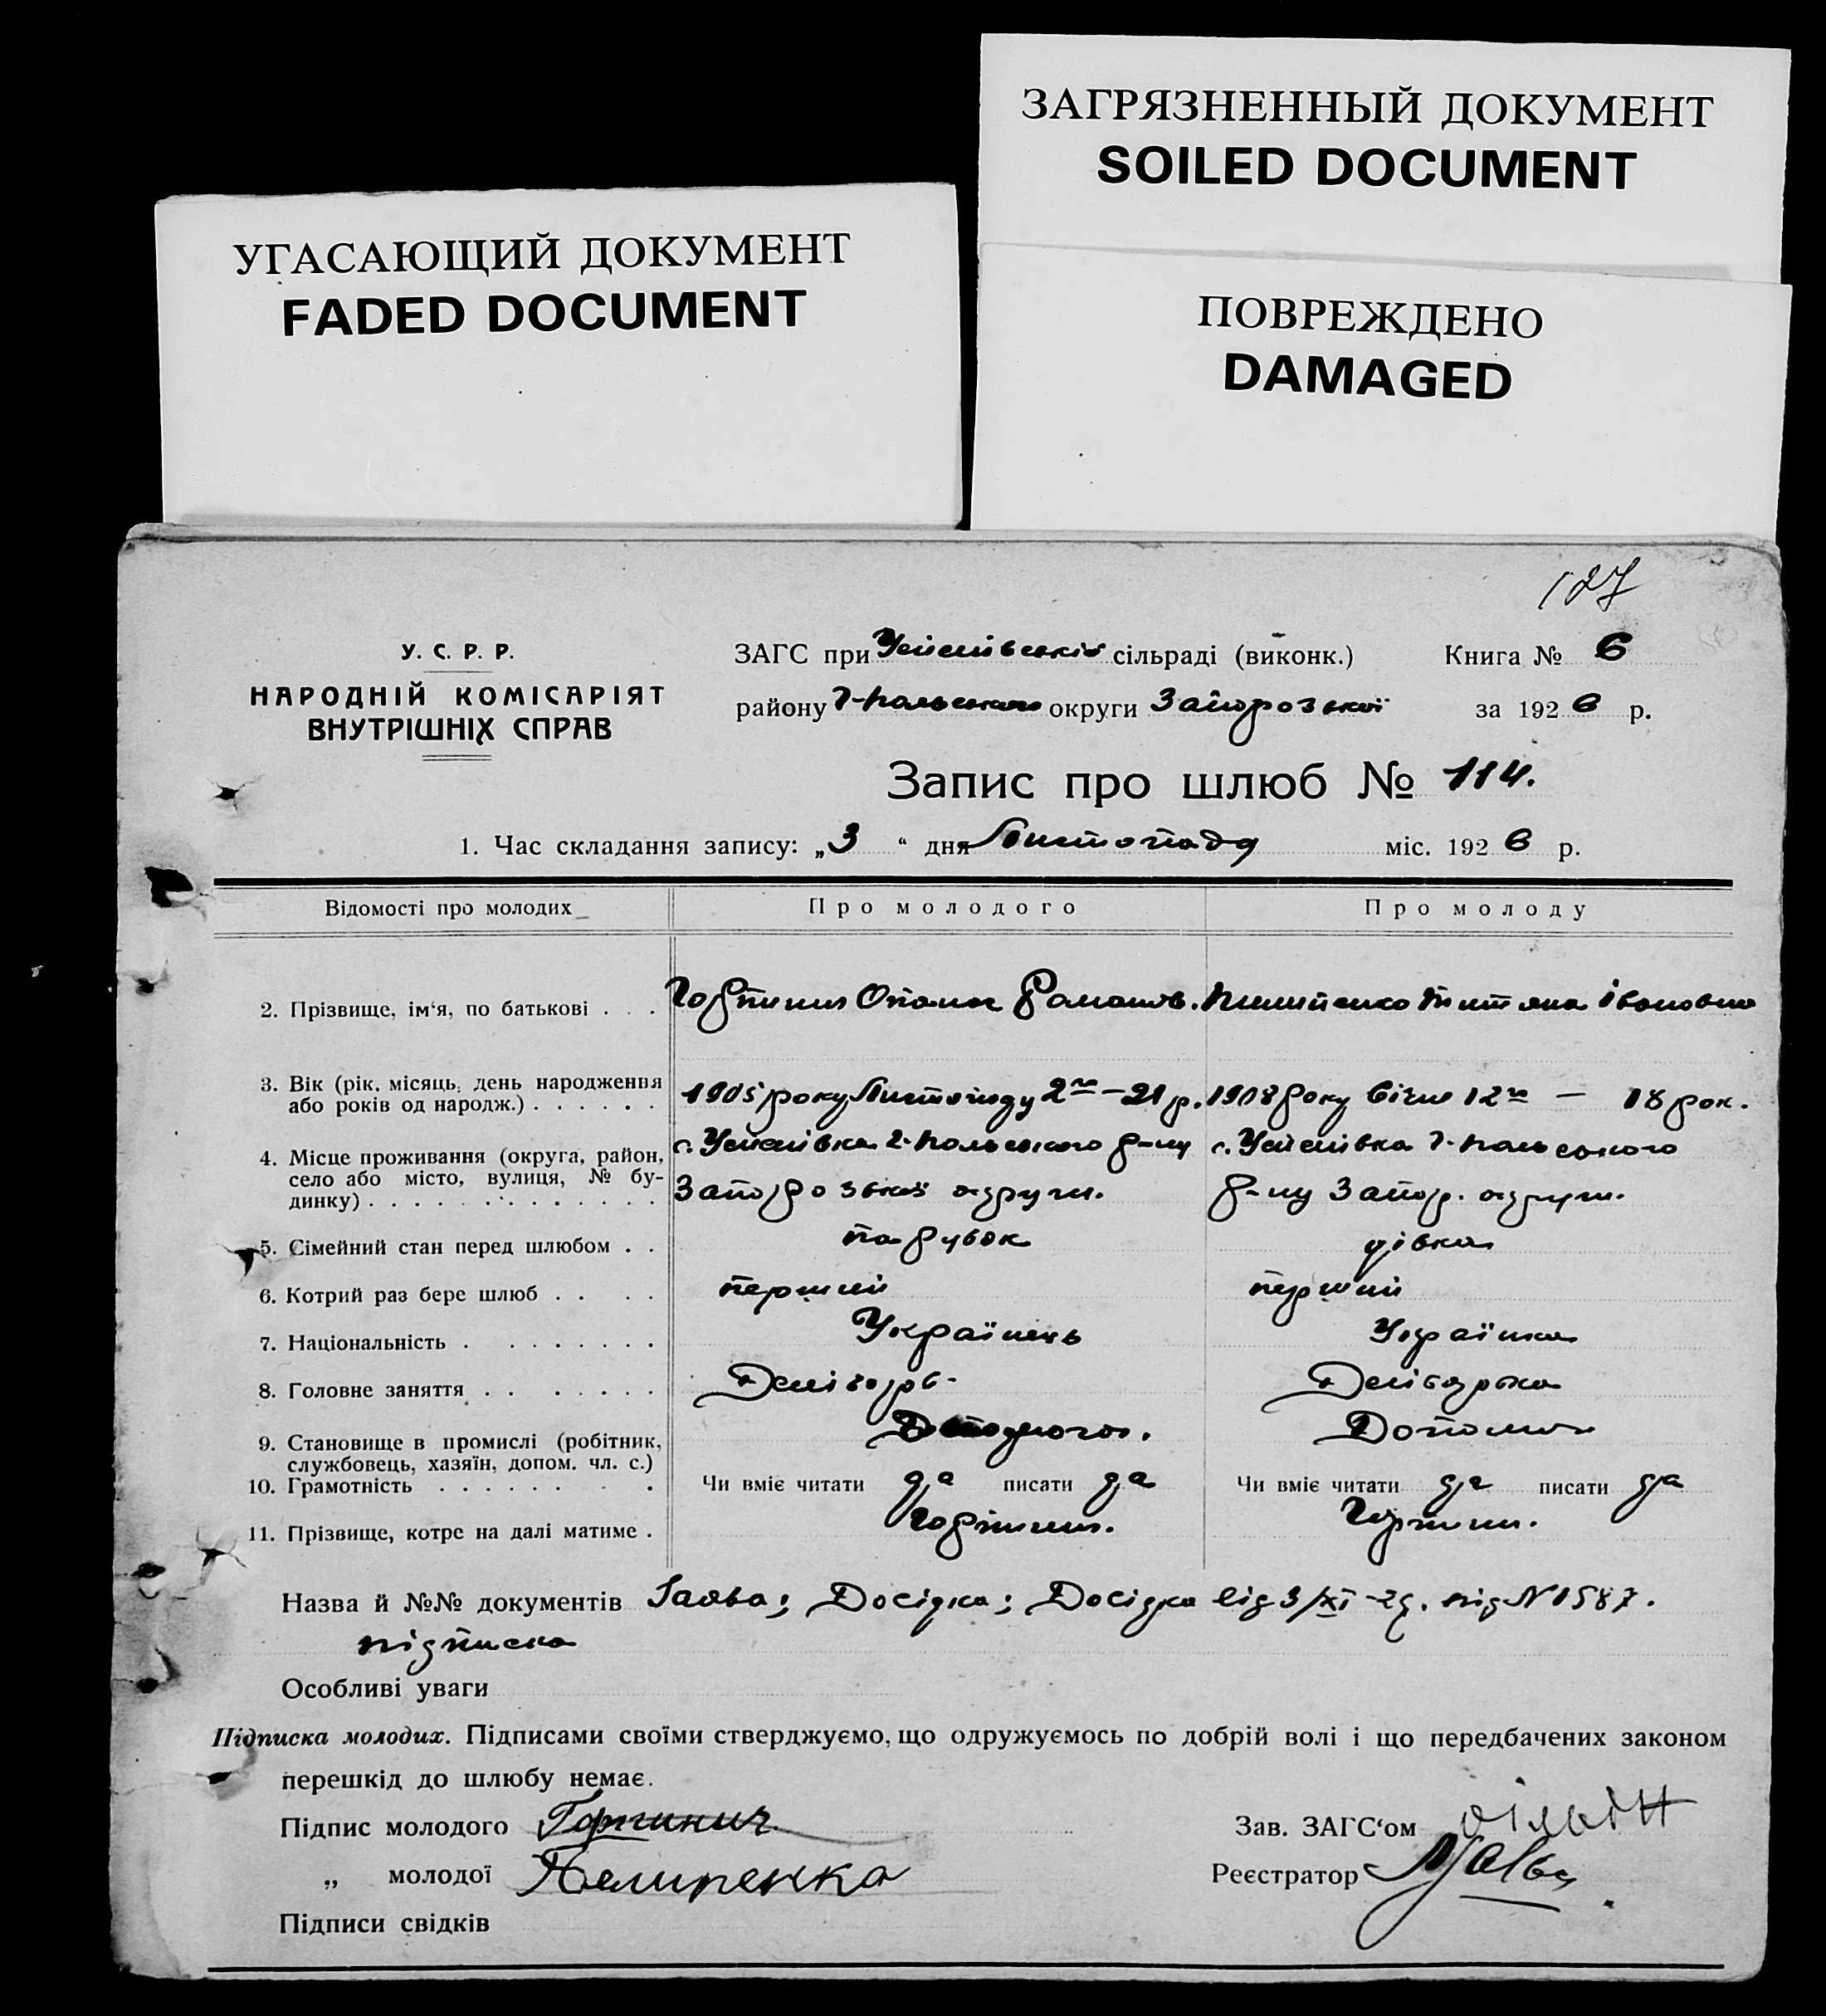 ЗАГРЯЗНЕННЫЙ ДОКУМЕНТ
SOILED DOCUMENT
УГАСАЮЩИЙ ДОКУМЕНТ
FADED DOCUMENT
ПОВРЕЖДЕНО
DAMAGED
127
У. С. Р. Р.
НАРОДНІЙ КОМІСАРІЯТ
ВНУТРІШНІХ СПРАВ
ЗАГС при Успенівській сільраді (виконк.) Книга № 6
району Г-Польського округи Запорозької за 1926 р.
Запис про шлюб № 114.
1. Час складання запису: „3“ дня Листопаду міс. 1926 р.
Відомості про молодих Про молодого Про молоду
2. Прізвище, ім‘я, по батькові . . . Горпинич Опанас Романов. Пилипенко Титяна Івановна
3. Вік (рік, місяць, день народження
або років од народж.) . . . . . . 1905 року Листопаду 2го – 21 р. 1908 року Січня 12го — 18 рок.
4. Місце проживання (округа, район, с. Успенівка Г-Польського р-ну с. Успенівка Г-Польського
село або місто, вулиця, № бу-
динку) . . . . . . . . . . . . . Запорозької округи. р-ну Запор. округи.
5. Сімейний стан перед шлюбом . . парубок дівка
6. Котрий раз бере шлюб . . . . перший перший
7. Національність . . . . . . . . Українець Українка
8. Головне заняття . . . . . . . Хлібороб Хліборобка
9. Становище в промислі (робітник,
службовець, хазяїн, допом. чл. с.) Допомог
10. Грамотність . . . . . . . . Чи вміє читати да писати да Чи вміє читати да писати да
11. Прізвище, котре на далі матиме . Горпинич. Горпинич.
Назва й №№ документів Заява; Досідка; Досідка від 3/XI-26. під № 1587.
підписка
Особливі уваги
Підписка молодих. Підписами своїми стверджуємо, що одружуємось по добрій волі і що передбачених законом
перешкід до шлюбу немає.
Підпис молодого Горпинич
Зав. ЗАГС‘ом
„ молодої
Реєстратор
Підписи свідків